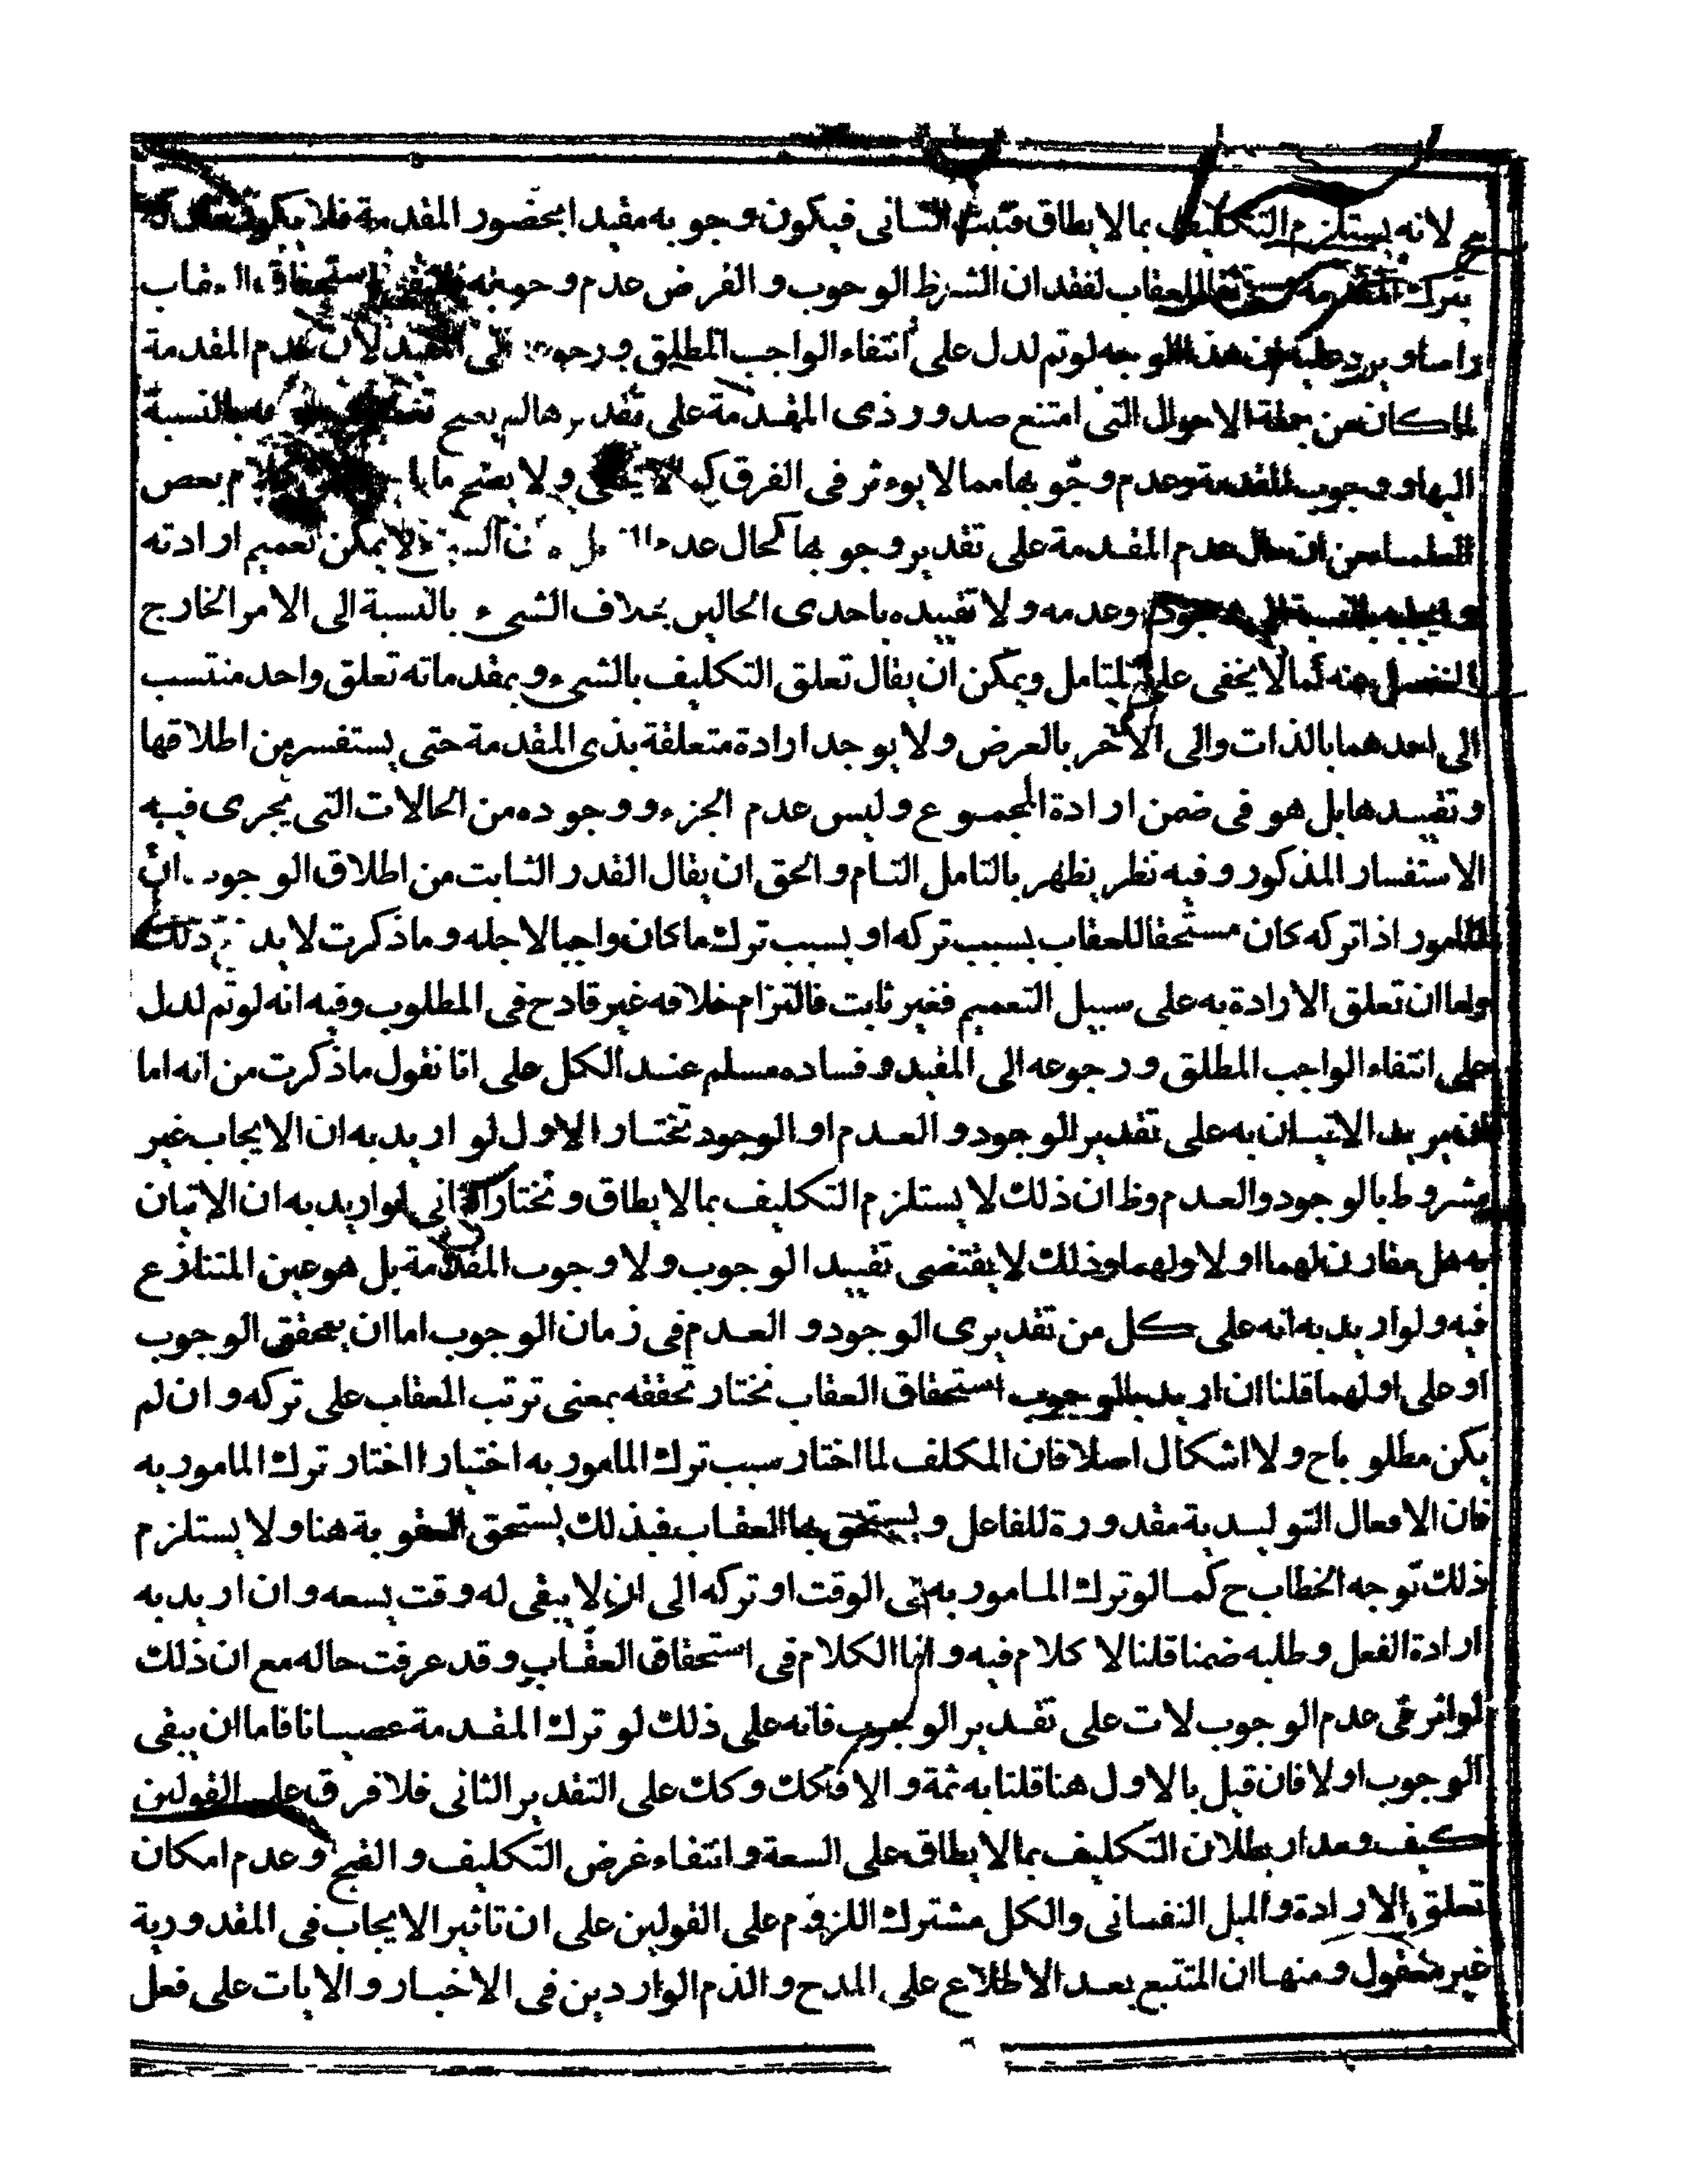 ح لانه يستلزم التكليف بما لا يطاق فثبت الثانى فيكون وجوبه مقيدا بحضور المقدمة فلا يكون
بترك المقدمة مستحقا للعقاب لفقدان الشرط الوجوب والفرض عدم وجوبه استحقاق العقاب
راسا ويرد عليه ان هذا الوجه لو تم لدل على انتفاء الواجب المطلق ورجوعه الى المقيد لان عدم المقدمة
لما كان من جملة الاحوال التى امتنع صدور ذى المقدمة على تقديرها لم يصح بالنسبة
اليها ووجوب المقدمة وعدم وجوبها مما لا يوءثر فى الفرق كما لا يخفى ولا يصح بعض
من ان حال عدم المقدمة على تقدير وجوبها كحال عدم لا يمكن تعميم ارادته
بالنسبة الى وجود وعدمه ولا تقييده باحدى الحالين بخلاف الشىء بالنسبة الى الامر الخارج
المنفصل منه كما لا يخفى على المتامل ويمكن ان يقال تعلق التكليف بالشىء وبمقدماته تعلق واحد منتسب
الى احدهما بالذات والى الآخر بالعرض ولا يوجد ارادة متعلقة بذى المقدمة حتى يستفسر من اطلاقها
وتقييدها بل هو فى ضمن ارادة المجموع وليس عدم الجزء ووجوده من الحالات التى يجرى فيه
الاستفسار المذكور وفيه نظر يظهر بالتامل التام والحق ان يقال القدر الثابت من اطلاق الوجوب ان
المامور اذا تركه كان مستحقا للعقاب بسبب تركه او بسبب ترك ما كان واجبا لاجله وما ذكرت لا يد ذلك
واما ان تعلق الارادة به على سبيل التعميم فغير ثابت فالتزام خلافه غير قادح فى المطلوب وفيه انه لو تم لدل
على انتفاء الواجب المطلق ورجوعه الى المقيد وفساده مسلم عند الكل على انا نقول ما ذكرت من انه اما
ان يريد الاتيان به على تقدير الوجود والعدم او الوجود نختار الاول لو اريد به ان الايجاب غير
مشروط بالوجود والعدم وظ ان ذلك لا يستلزم التكليف بما لا يطاق ونختار الثانى لو اريد به ان الاتيان
به هل مقارن لهما او لاولهما وذلك لا يقتضى تقييد الوجوب ولا وجوب المقدمة بل هو عين المتنازع
فيه ولو اريد به انه على كل من تقديرى الوجود والعدم فى زمان الوجوب اما ان يتحقق الوجوب
او على اولهما قلنا ان اريد بالوجوب استحقاق العقاب نختار تحققه بمعنى ترتب العقاب على تركه وان لم
يكن مطلوبا ح ولا اشكال اصلا فان المكلف لما اختار سبب ترك المامور به اختيارا اختار ترك المامور به
فان الافعال التوليدية مقدورة للفاعل ويستحق بها العقاب فبذلك يستحق العقوبة هنا ولا يستلزم
ذلك توجه الخطاب ح كما لو ترك المامور به فى الوقت او تركه الى ان لا يبقى له وقت يسعه وان اريد به
ارادة الفعل وطلبه ضمنا قلنا لا كلام فيه وانما الكلام فى استحقاق العقاب وقد عرفت حاله مع ان ذلك
لو اثر فى عدم الوجوب لات على تقدير الوجوب فانه على ذلك لو ترك المقدمة عصيانا فاما ان يبقى
الوجوب اولا فان قيل بالاول هنا قلنا به ثمة والا فكك وكك على التقدير الثانى فلا فرق على القولين
كيف ومدار بطلان التكليف بما لا يطاق على السعة وانتفاء غرض التكليف والقبح وعدم امكان
تعلق الارادة والميل النفسانى والكل مشترك اللزوم على القولين على ان تاثير الايجاب فى المقدورية
غير معقول ومنها ان المتتبع بعد الاطلاع على المدح والذم الواردين فى الاخبار والايات على فعل